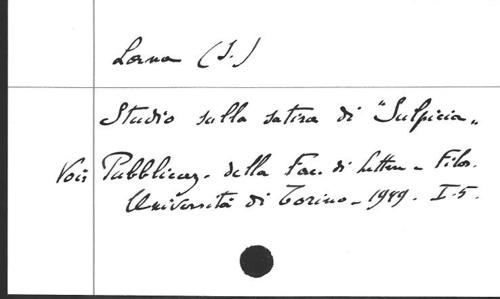 Lana (I.)
Studio sulla satira di "Sulpicia"
Voir Pubblicaz. della Fac. di Letter. - Filos.
Università di Torino - 1949. I-5.